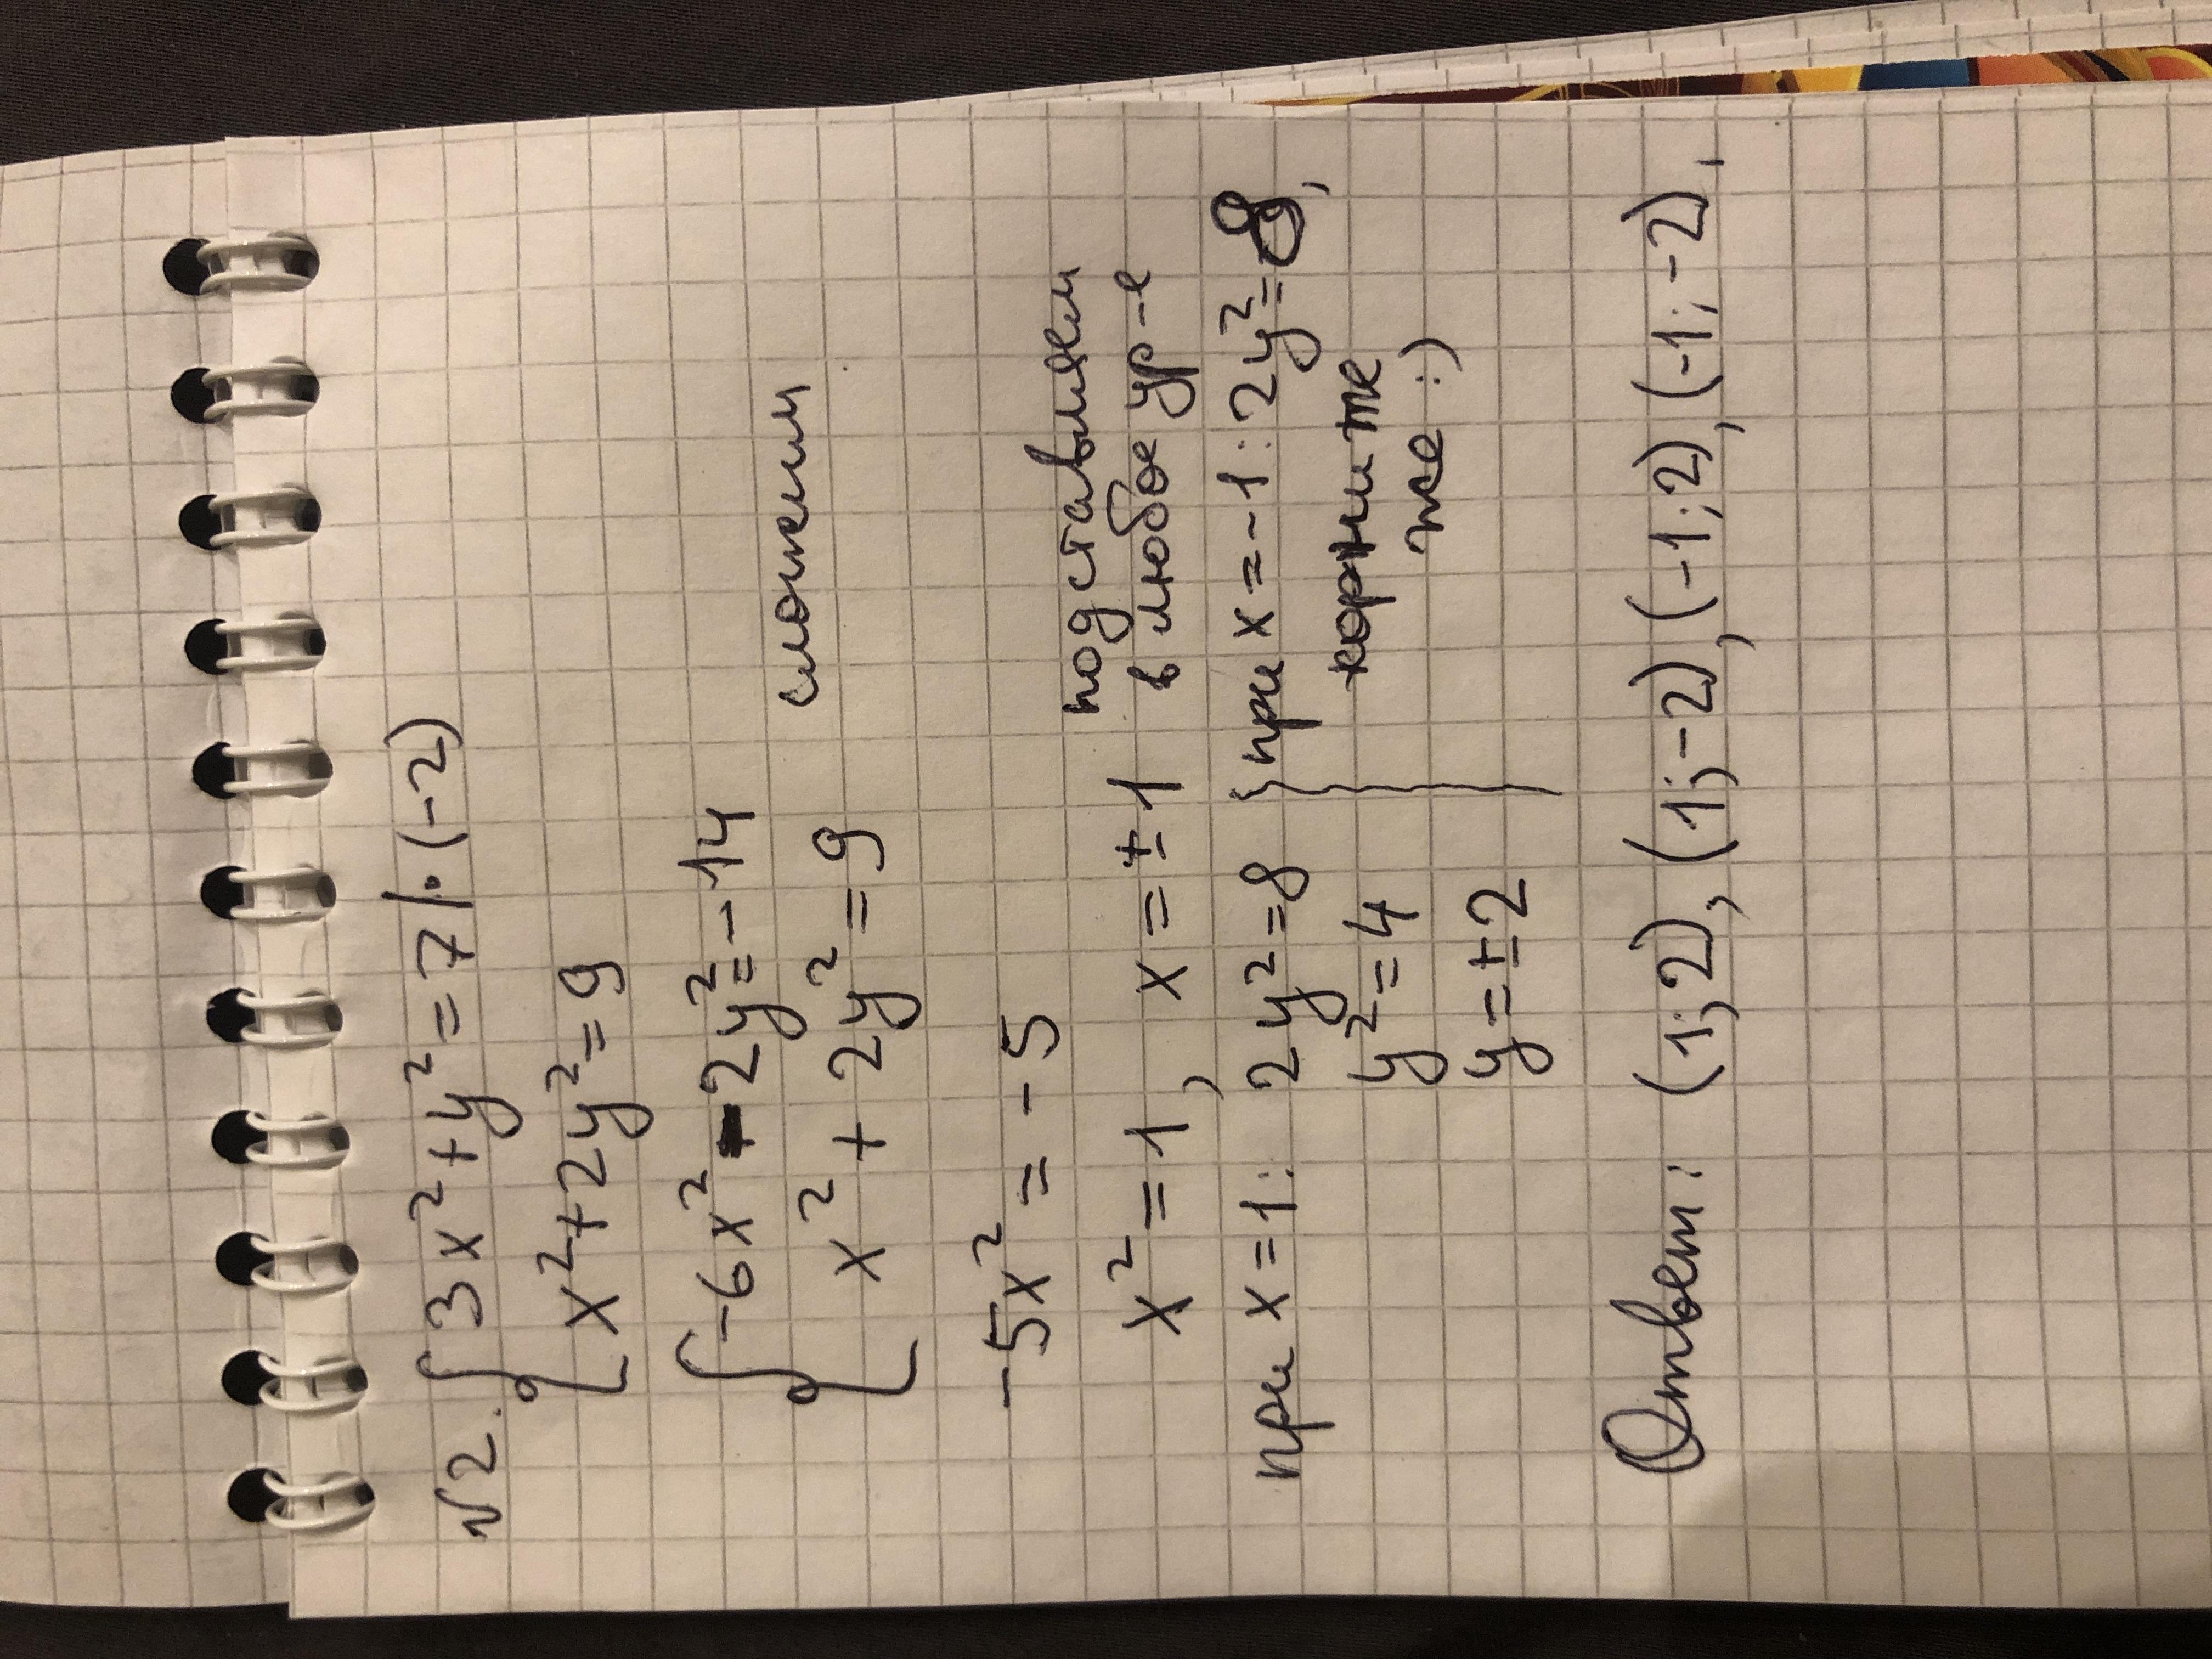 √2. { 3x² + y² = 7 | · (-2)
x² + 2y² = 9
{ -6x² - 2y² = -14
x² + 2y² = 9 сложении
-5x² = -5
x² = 1, x = ±1 подставляем в любое ур-е
при x = 1: 2y² = 8 } при x = -1: 2y² = 8,
y² = 4 корни те
y = ±2 же :)
Ответ: (1; 2), (1; -2), (-1; 2), (-1; -2).